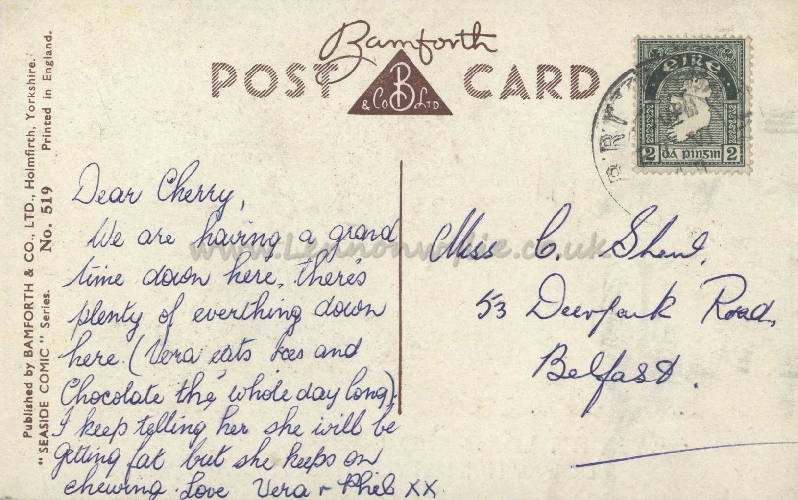 Bamforth
POST CARD
B
& Co LTD
Published by BAMFORTH & CO., LTD., Holmfirth, Yorkshire.
"SEASIDE COMIC" Series. No. 519 Printed in England.
éire
2 dá pingin 2
www.Lennonwylie.co.uk
Dear Cherry,
We are having a grand
time down here, there's
plenty of everthing down
here. (Vera eats Ices and
Chocolate the whole day long)
I keep telling her she will be
getting fat but she keeps on
chewing. Love Vera + Phil XX.
Miss C. Shaw,
53 Deerpark Road,
Belfast.